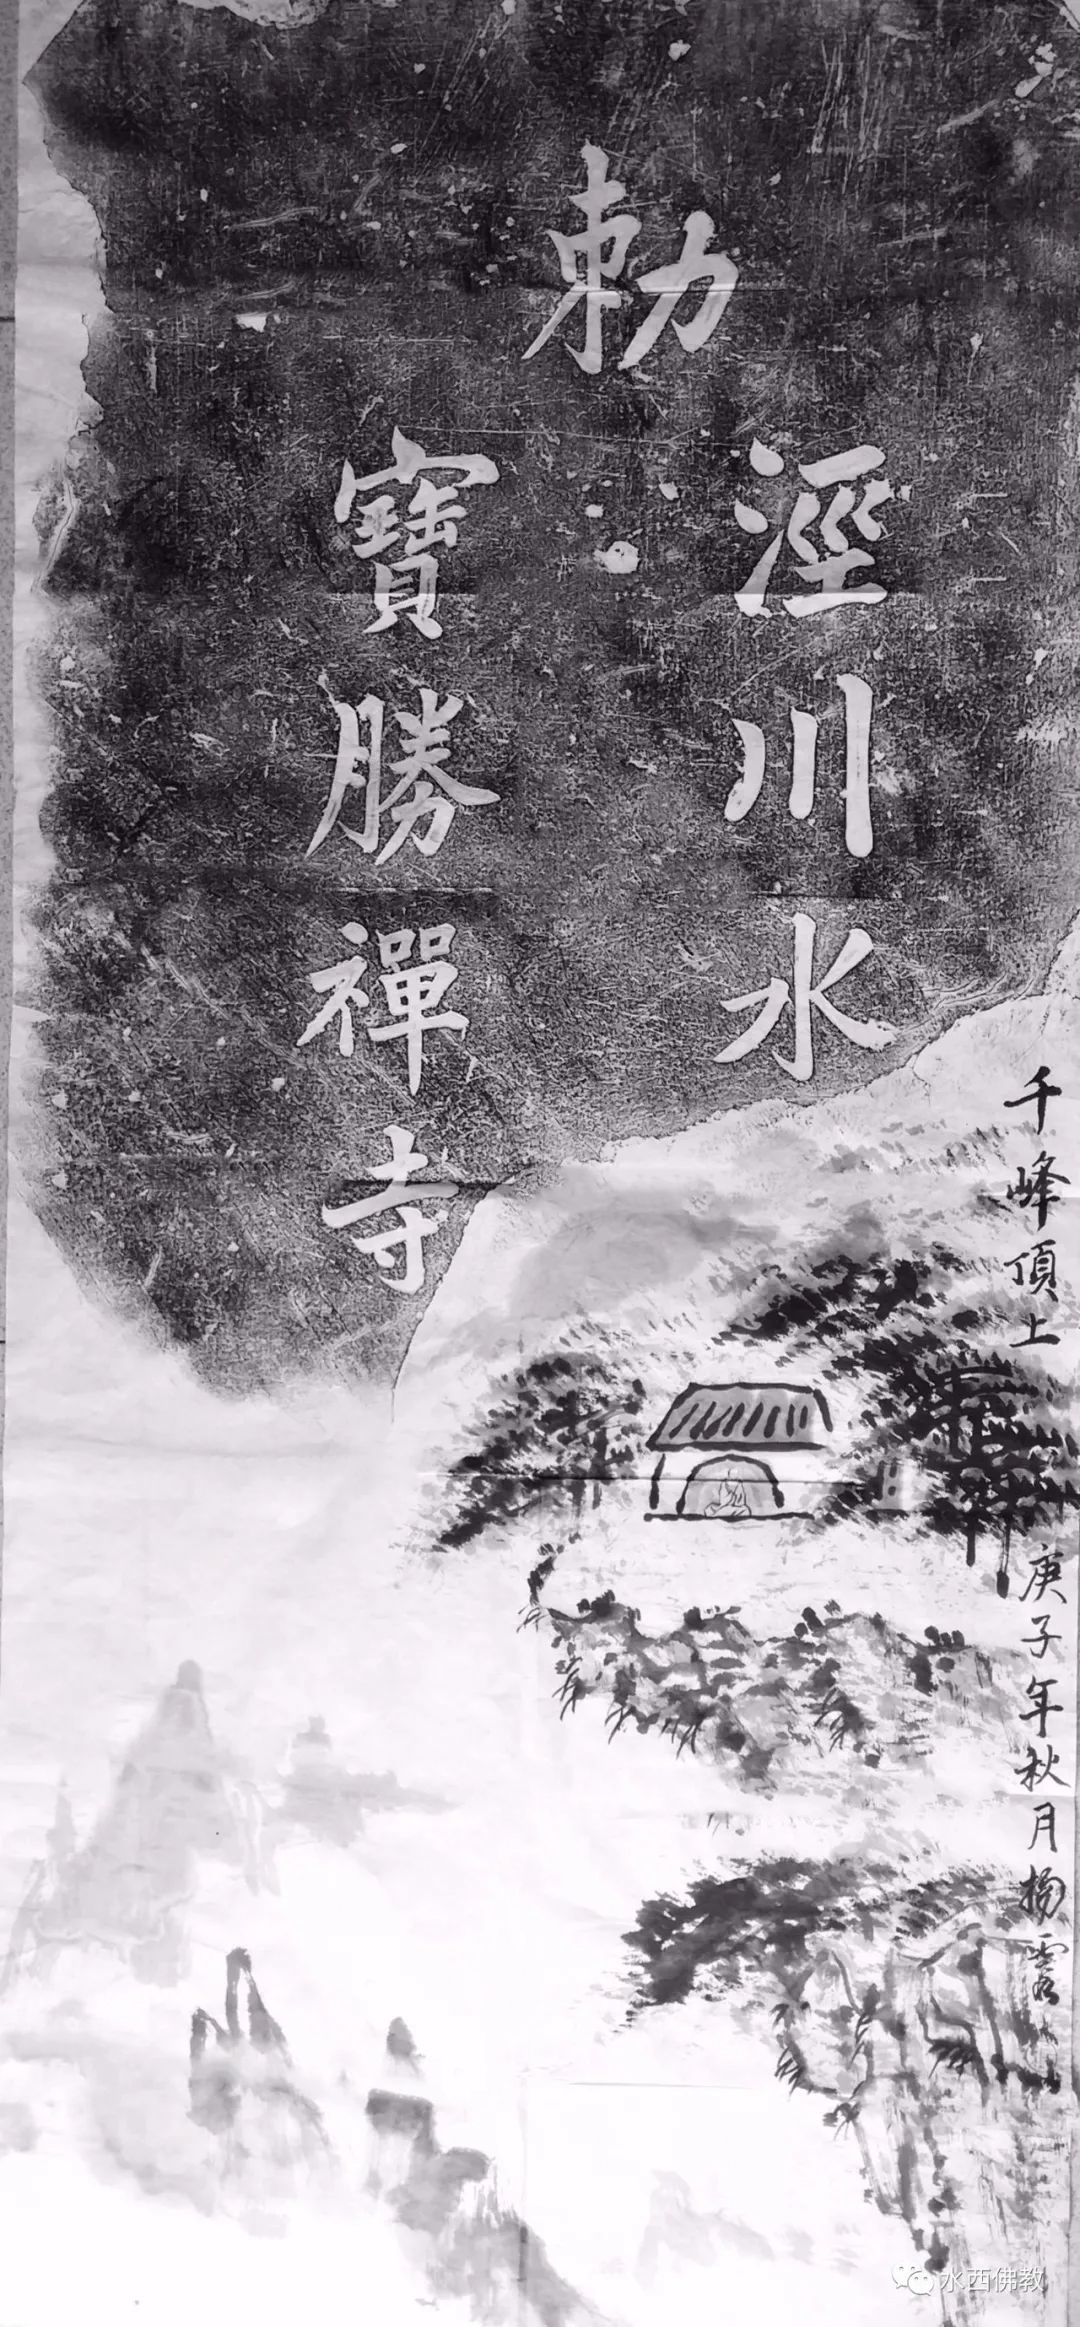 勅
涇川水
寶勝禪寺
千峰頂上
庚子年秋月
水西佛教